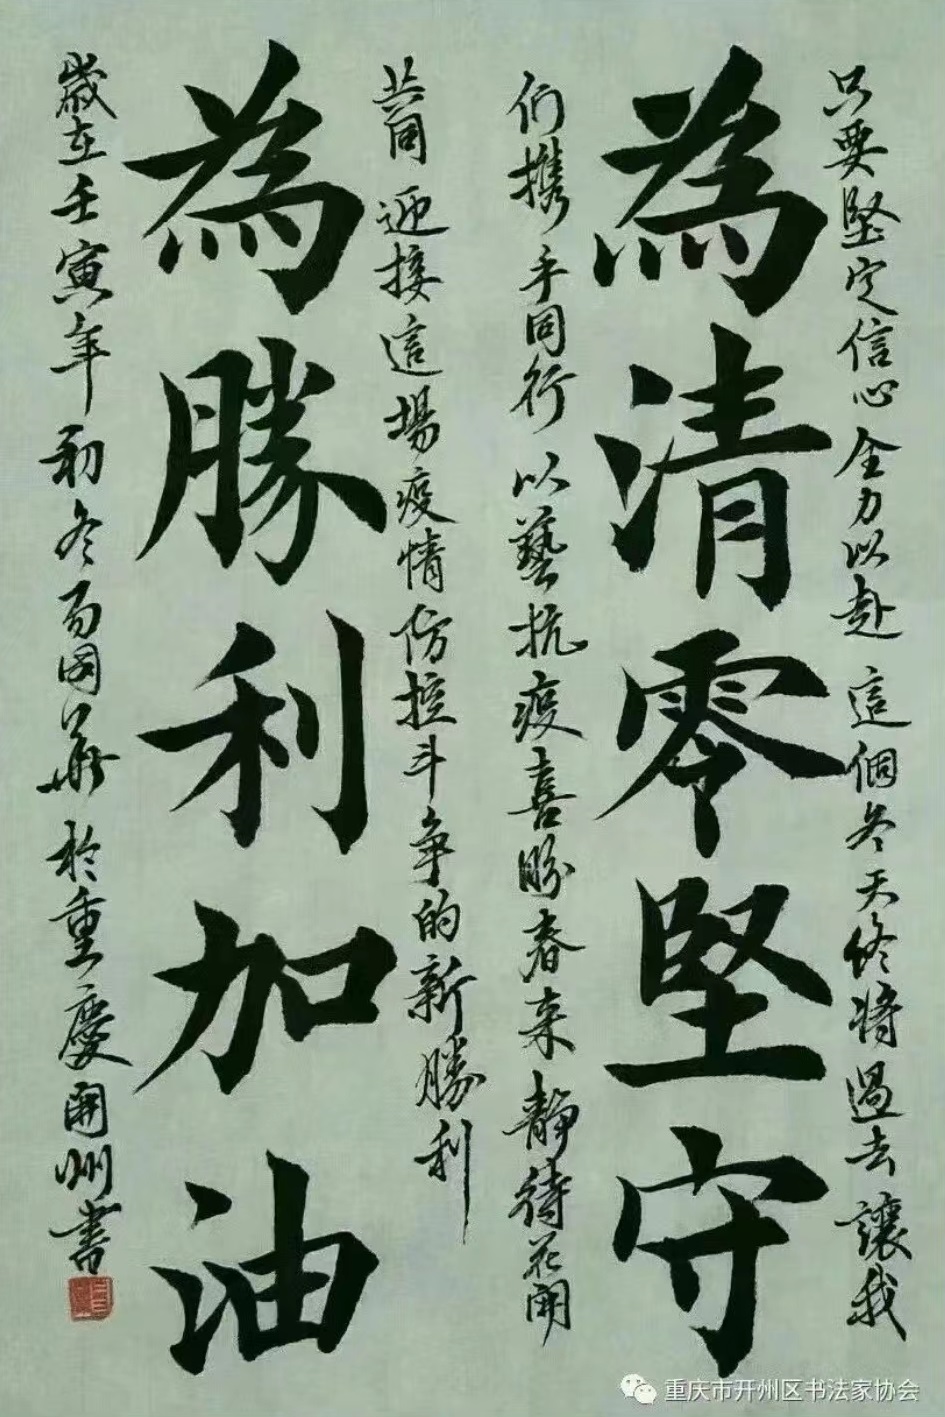 只要堅定信心全力以赴這個冬天終將過去讓我
為清零堅守
们攜手同行以藝抗疫喜盼春来静待花開
共同迎接這場疫情防控斗争的新勝利
為勝利加油
歲在壬寅年初冬周国華於重慶開州書
重庆市开州区书法家协会